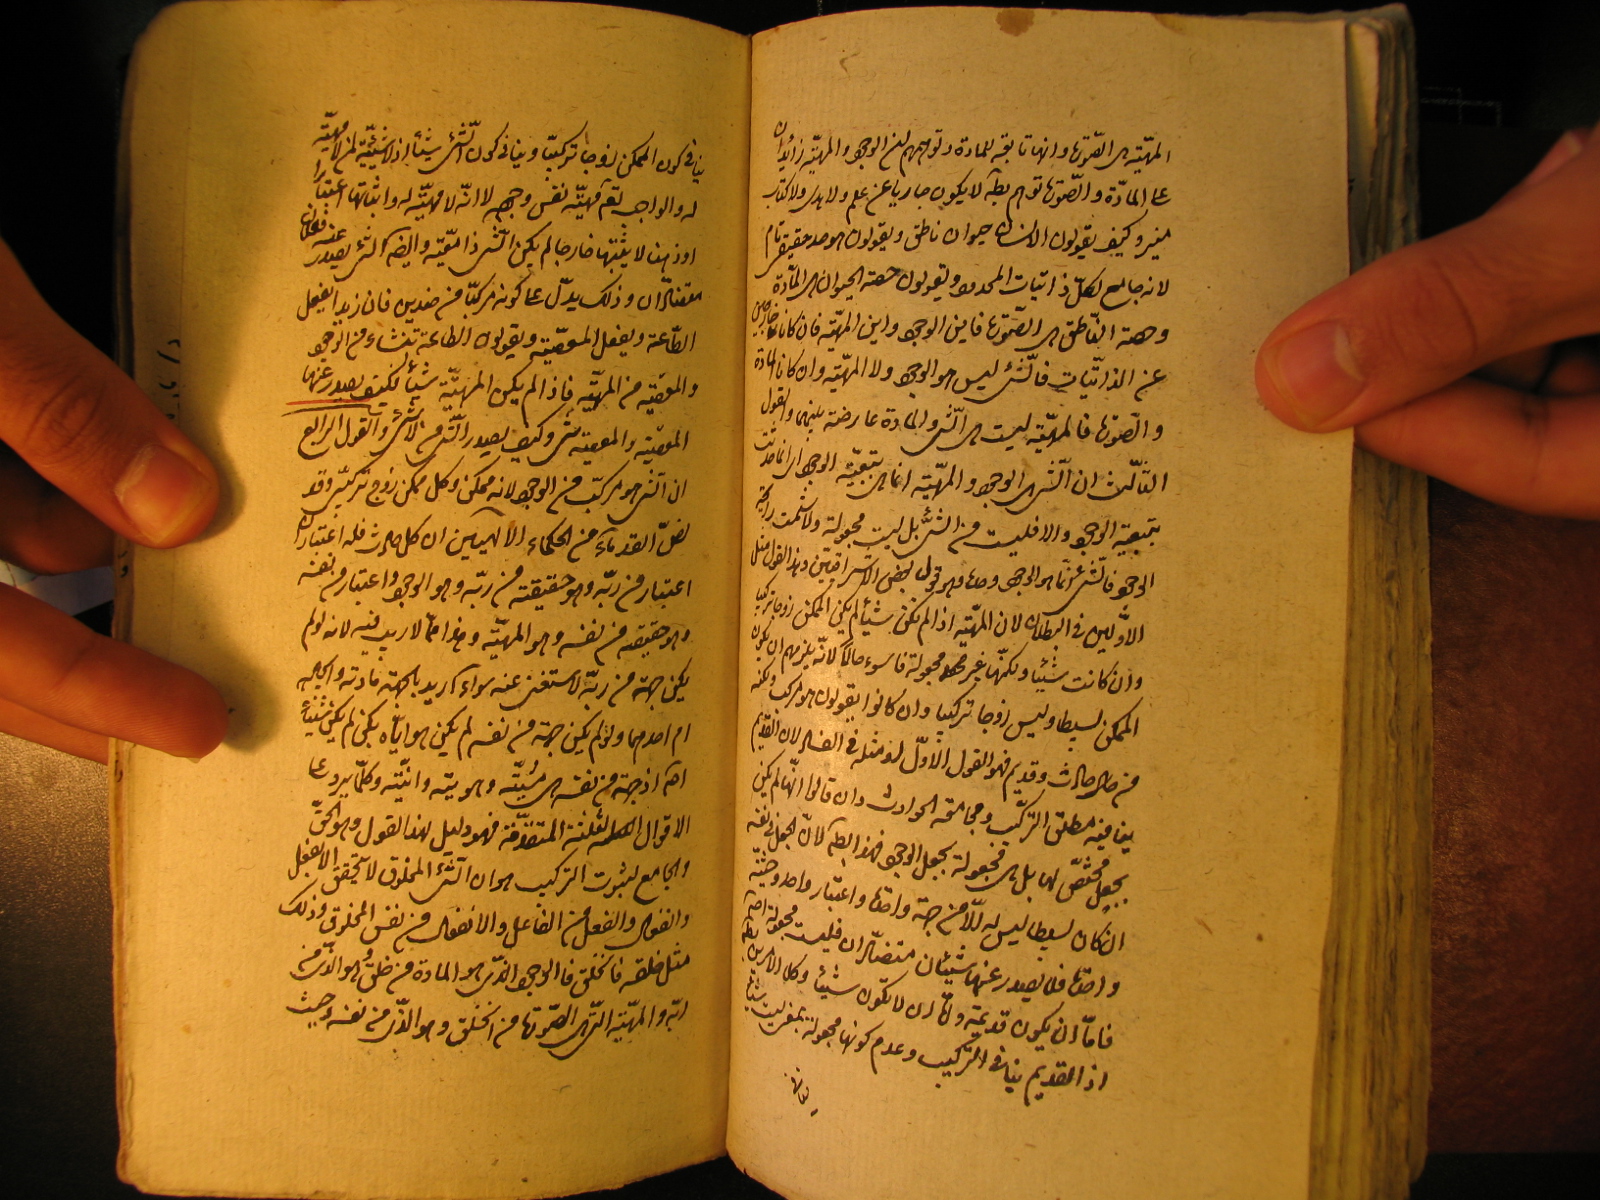 المهيّة هى الصّورة وانها تابعة للمادة وتوهمهم ان الوجود والمهيّة زايدان
على المادّة والصّورة توهم بطه لا يكون صاريا عن علم ولا هدى ولا كتاب
منير وكيف يقولون الانسان حيوان ناطق ويقولون هو حد حقيقى تام
لانه جامع لكلّ ذاتيات المحدود ويقولون حصة الحيوان هى المادّة
وحصة النّاطق هى الصّورة فاين الوجود واين المهيّة فان كانا خارجين
عن الذاتيّات فالشّئ ليس هو الوجود ولا المهيّة وان كانا المادة
والصّورة فالمهيّة ليست هى الشّئ والمادة عارضة عليها والقول
الثّالث ان الشّئ هو الوجود والمهيّة انما هى بتبعيّة الوجود اى انما حدثت
بتبعية الوجود والا فليست من الشّئ بل ليست مجعولة ولا شمت رايحة
الوجود فالشّئ انّما هو الوجود وحده وهو قول بعض الاشراقيّين وهذا القول مثل
الاوّلين فى البطلان لان المهيّة اذا لم تكن شيئا لم يكن الممكن زوجا تركيبيا
وان كانت شيئا ولكنّها غير مجعولة فاسوء حالا لانّه يلزمهم ان يكون
الممكن بسيطا وليس زوجا تركيبيا وان كانوا يقولون هو مركب ولكنه
من حادث وقديم فهو القول الاوّل او مثله فى الفساد لان القديم
ينافيه مطلق التركّب ومجامعة الحوادث وان قالوا انّها لم يكن
بجعل مختصّ لها بل هى مجعولة بجعل الوجود فهذا بطه لانّ الجعل فى نفسه
ان كان بسيطا ليس له الّا من جهة واحدة واعتبار واحد وحيثيّة
واحدة فلا يصدر عنها شيئان متضادّان فليست مجعولة اصلا
فامّا ان يكون قديمة وامّا ان لا تكون شيئا وكلا الامرين بطه
اذ القديم ينافى التركيب وعدم كونها مجعولة بمعنى ليست شيئا
ينافى
ينافى كون الممكن زوجا تركيبيّا وينافى كون الشّئ شيئا اذ لا شيئيّة لمن لا مهيّة
له والواجب تعه مهيّته نفس وجوده لا انّه لا مهيّة له واثباتها اعتبارا
او ذهنا لا يثبتها خارجا لم يكن الشّئ ذا مهيّة وايضه الشّئ يصدر عنه فعلان
متضادّان وذلك يدلّ على كونه مركبّا من ضدين فان زيدا يفعل
الطّاعة ويفعل المعصيّة ويقولون الطاعة تنشاء من الوجود
والمعصيّة من المهيّة فاذا لم يكن المهيّة شيئا لكيف يصدر عنها
المعصيّة والمعصية شئ وكيف يصدر الشّئ من لا شئ والقول الرابع
ان الشّئ هو مركبّ من الوجود لانه ممكن وكل ممكن زوج تركيبى وقد
نصّ القدماء من الحكماء الالهيين ان كل حادث فله اعتباران
اعتبار من ربّه وهو حقيقته من ربّه وهو الوجود واعتبار من نفسه
وهو حقيقته من نفسه وهو المهيّة وهذا ممّا لا ريب فيه لانه لو لم
يكن جهة من ربّه لاستغنى عنه سواء اريد بالجهة مادته والجهة
ام احدهما ولو لم يكن جهة من نفسه لم يكن هو ايّاه يكن لم يكن شيئا
اصه اذ جهة من نفسه هى شيئيّته وهويته وانيّته وكلّما يرد على
الاقوال الثلاثة المتقدّمة فهو دليل لهذا القول وهو الحقّ
والجامع لثبوت التركيب هو ان الشّئ المخلوق لا يتحقق الا بفعل
وانفعال والفعل من الفاعل والانفعال من نفس المخلوق وذلك
مثل خلقه فانخلق فالوجود الّذى هو المادة من خلق وهو الّذى من
ربّه والمهيّة الّتى هى الصّورة من انخلق وهو الّذى من نفسه وحيث